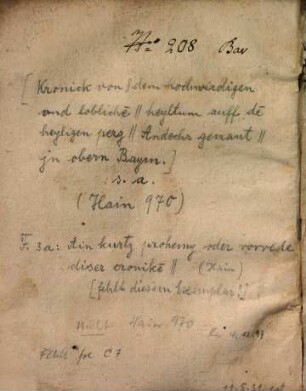 No 208 Bav
[Kronick von dem hochwirdigen
und lobliche || heyltum auff de
heyligen perg || Andechs genant ||
jn obern Bayrn.]
s. a.
(Hain 970)
F. 3a: Ain kurtz prohemy oder vorrede
diser cronike || (Hain)
[fehlt diesem Exemplar!]
nicht Hain 970
Fehlt C7